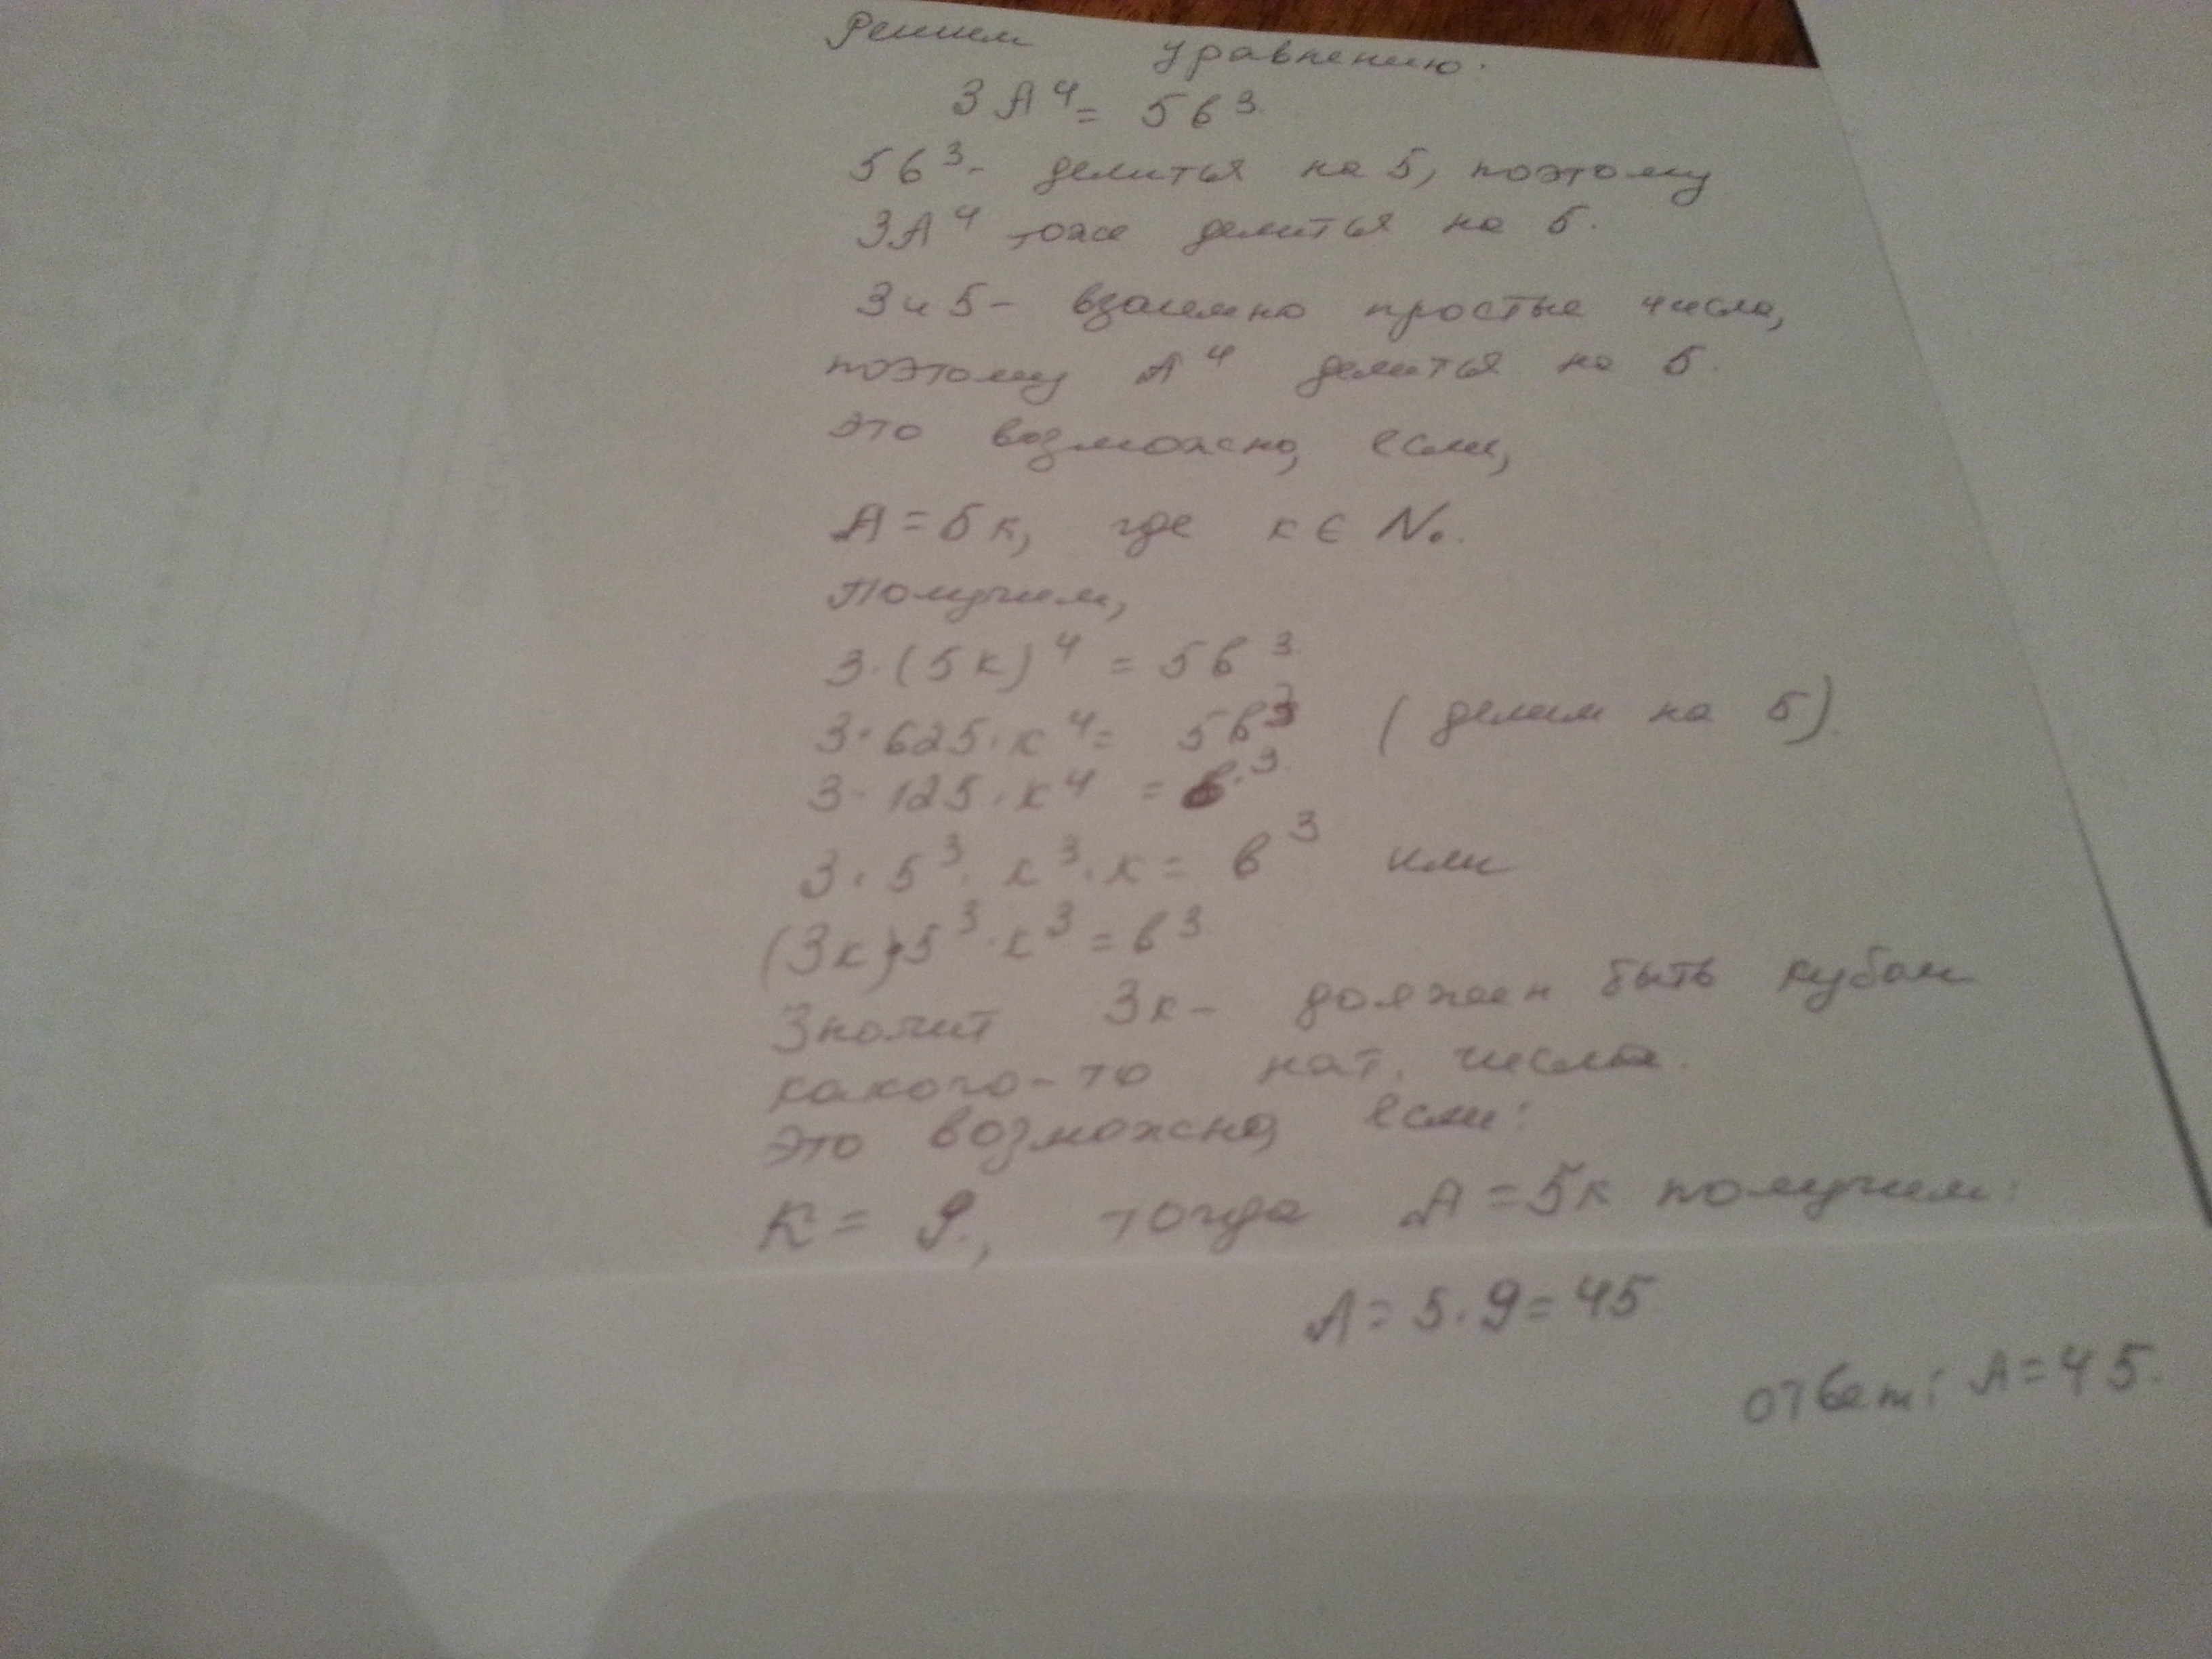 Решим уравнению:
3A⁴ = 5в³
5в³ - делиться на 5, поэтому
3A⁴ тоже делиться на 5.
3 и 5 - взаимно простые числа,
поэтому A⁴ делиться на 5.
это возможно, если,
A = 5к, где к ∈ N₀.
Получим,
3·(5к)⁴ = 5в³
3·625·к⁴ = 5в³ (делим на 5).
3·125·к⁴ = в³
3·5³·к³·к = в³ или
(3к)·5³·к³ = в³
Значит 3к - должен быть кубом
какого-то нат. числа.
Это возможно, если:
К = 9, тогда A = 5к получим:
A = 5·9 = 45
ответ: A = 45.